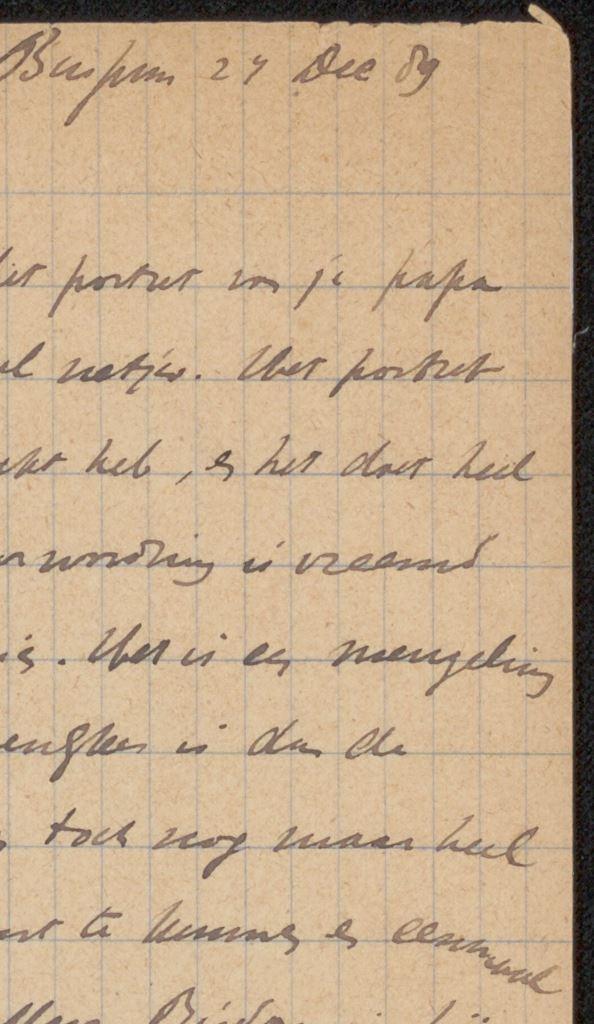 Bussum 27 Dec 89
portret van je papa
netjes. Het portret
heb, en het doet heel
wording is vreemd
Het is een mengeling
is dan de
toch nog maar heel
te kunnen en eenmaal